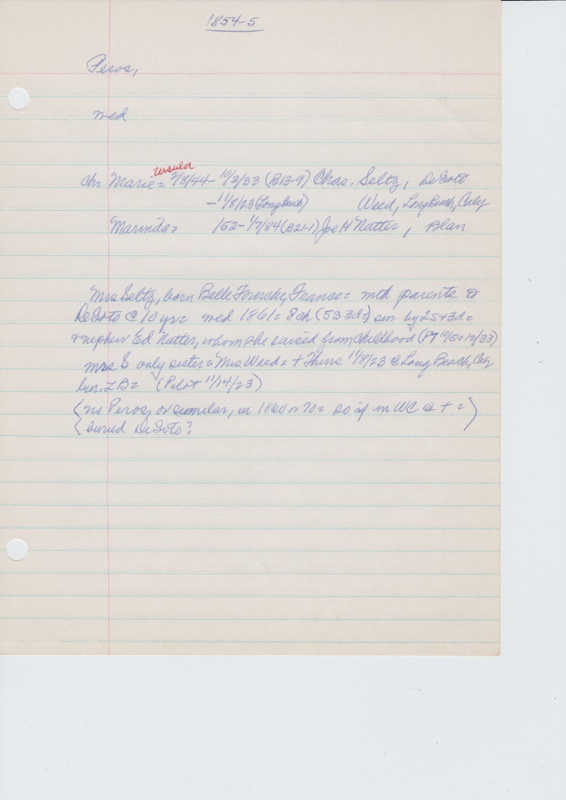 1854-5
Peros,
med
Ursula
ch Marie = 2/8/44 - 10/3/33 (B13-9) Chas. Seltz, DeSoto
- 11/8/23 (Long Beach) Weed, Long Beach, Caly
Marinda = 152 - 1/7/84 (B21-1) Joe H Natter, Blair
Mrs Seltz, born Belle Fourche, France = with parents to
DeSoto @ 10 yrs = med 1861 = 8 ch (5s 3ds) sur by 2s+3d =
+ nephew Ed Natter, whom she raised from childhood (PT 10/5+12/33)
Mrs S only sister = Mrs Weed = + Thurs 11/8/23 @ Long Beach, Caly
bur. LB = (Pilot 11/14/23)
(no Peros, or similar, in 1860 or 70 = so if in WC @ + =)
(buried DeSoto?